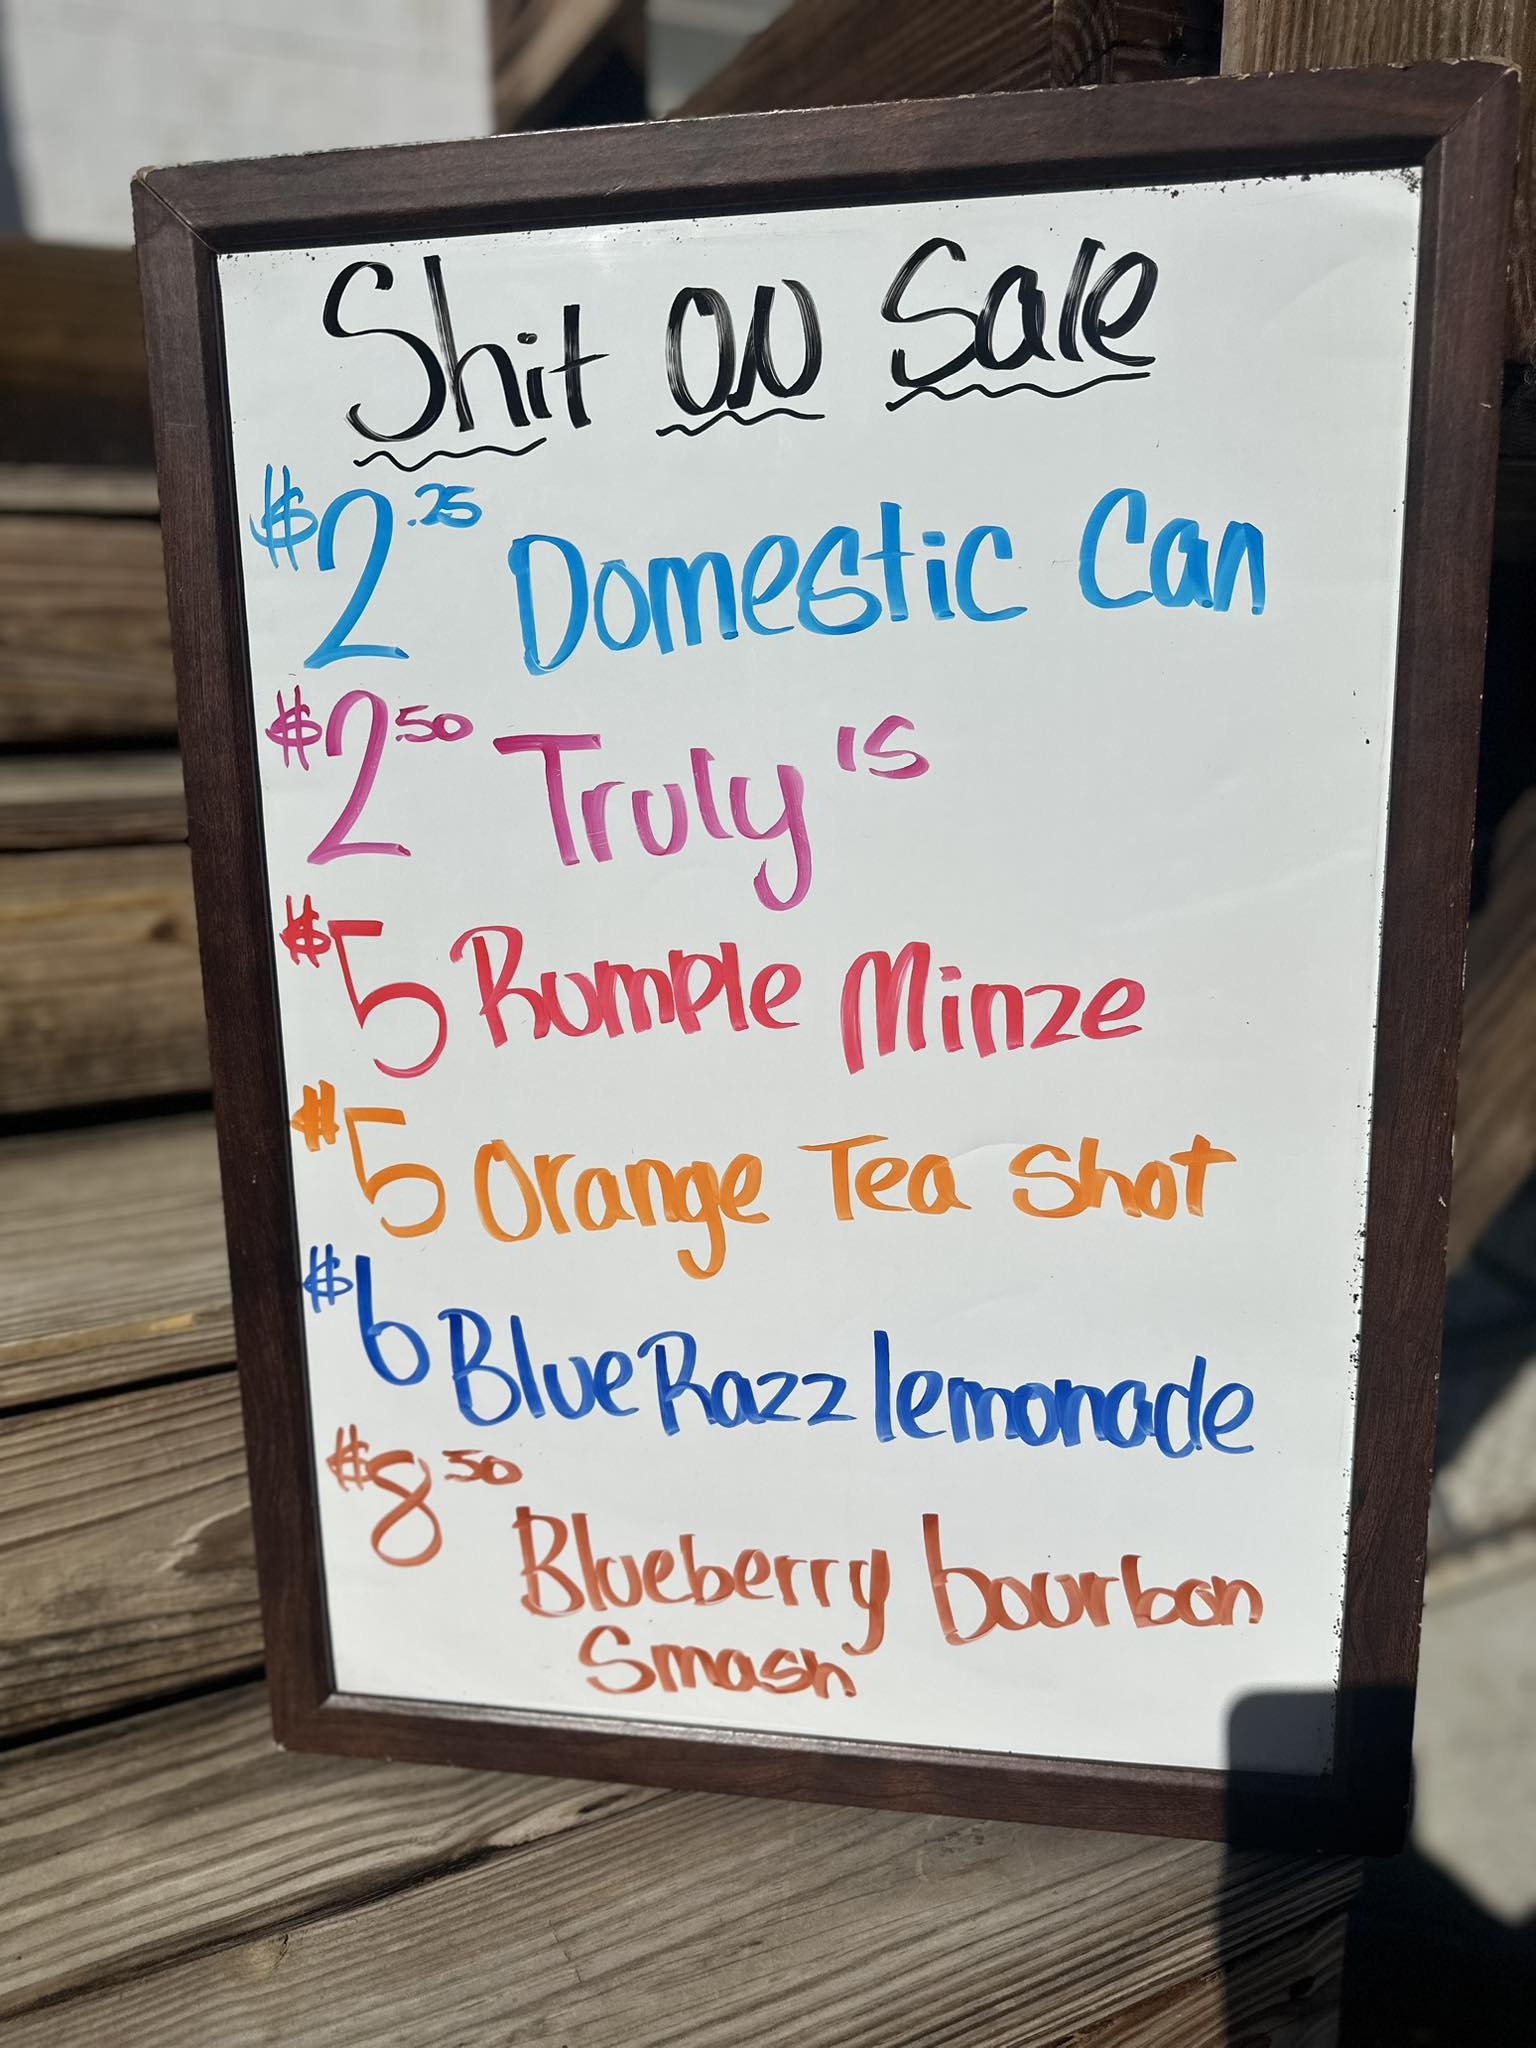 Shit ON Sale
$2.25 Domestic Can
$2.50 Truly's
$5 Rumple Minze
$5 Orange Tea Shot
$6 Blue Razz lemonade
$8.50 Blueberry bourbon
Smash